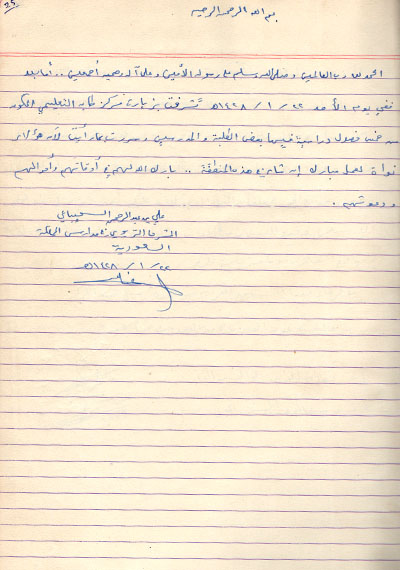 ٢٥
بسم الله الرحمن الرحيم
الحمد لله رب العالمين وصلى الله وسلم على رسوله الأمين وعلى آله وصحبه أجمعين .. أما بعد
ففي يوم الأحد ٢٢ / ١ / ١٤٢٨هـ تشرفت بزيارة مركز طابه التعليمي المكون
من خمسة فصول دراسية فيها بعض الطلبة والمدرسين وسررت بما رأيت لأنه هؤلاء
نواة لعمل مبارك إن شاء في هذه المنطقة .. بارك الله لهم في أوقاتهم وأموالهم
ودعوتهم .
علي بن عبدالرحمن
المشرف التربوي بمدارس المملكة
السعودية
٢٢ / ١ / ١٤٢٨هـ